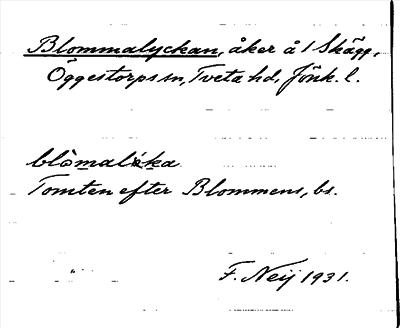 Blommalyckan, åker å 1 Skägg,
Öggestorps sn, Tveta hd, Jönk. l.
blòmalı́ka
Tomten efter Blommens, bs.
F. Neij 1931.